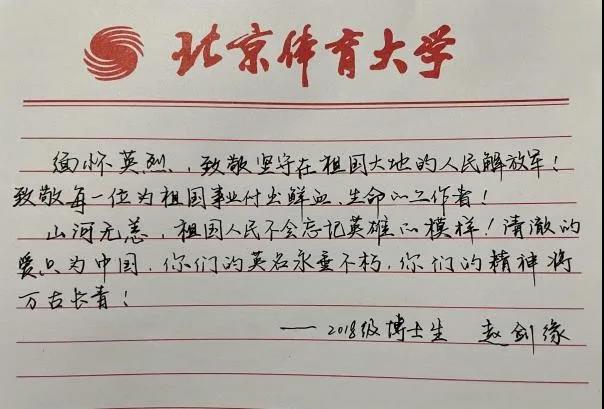 北京体育大学
缅怀英烈，致敬坚守在祖国大地的人民解放军！
致敬每一位为祖国事业付出鲜血、生命的工作者！
山河无恙，祖国人民不会忘记英雄的模样！清澈的
爱只为中国，你们的英名永垂不朽，你们的精神将
万古长青！
——2018级博士生 赵剑缘